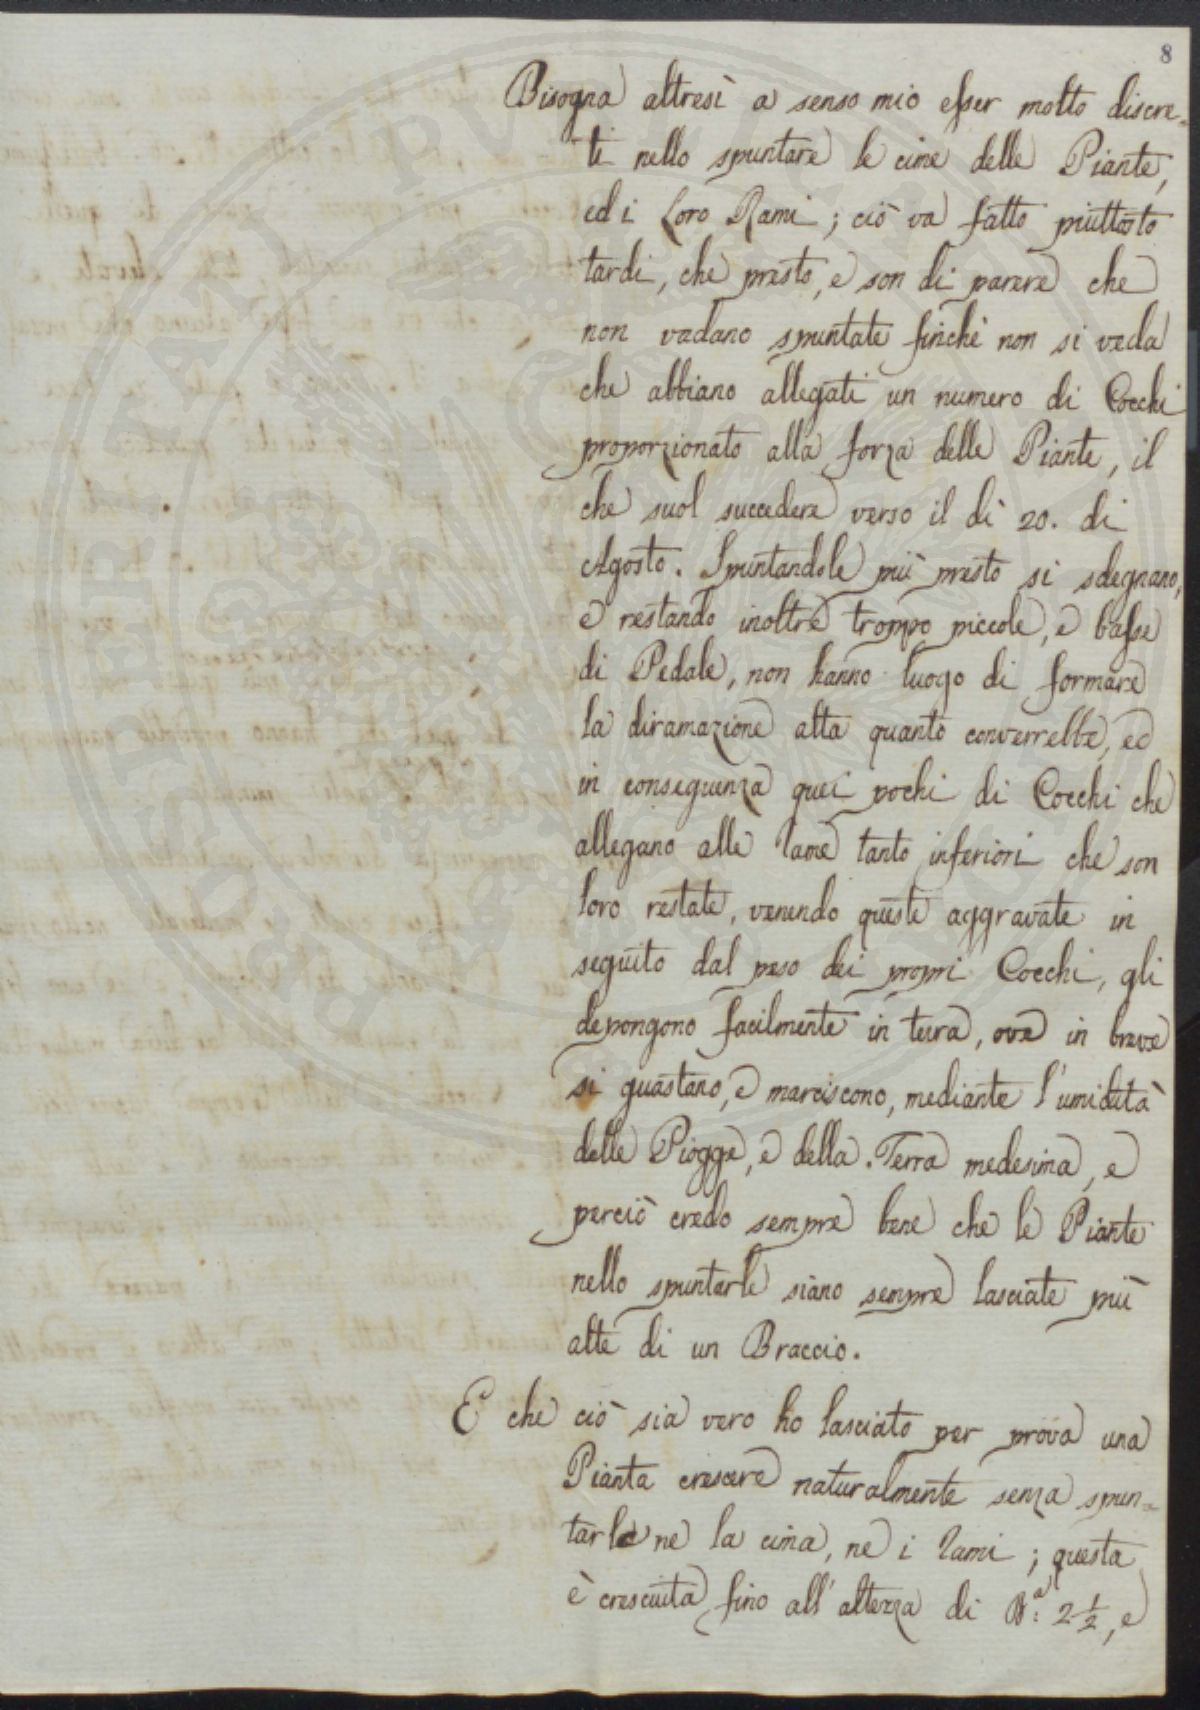 8
Bisogna altresì a senso mio esser molto discre=
ti nello spuntare le cime delle Piante,
ed i Loro Rami; ciò va fatto piuttosto
tardi, che presto, e son di parere che
non vadano spuntate finchè non si veda
che abbiano allegati un numero di Cocchi
proporzionato alla forza delle Piante, il
che suol succedere verso il dì 20. di
Agosto. Spuntandole più presto si sdegnano,
e restando inoltre troppo piccole, e basse
di Pedale, non hanno luogo di formare
la diramazione alta quanto converrebbe, ed
in conseguenza quei pochi di Cocchi che
allegano alle Rame tanto inferiori che son
loro restate, venendo queste aggravate in
seguito dal peso dei propri Cocchi, gli
depongono facilmente in terra, ove in breve
si guastano, e marciscono, mediante l'umidità
delle Piogge, e della Terra medesima, e
perciò credo sempre bene che le Piante
nello spuntarle siano sempre lasciate più
alte di un Braccio.
E che ciò sia vero ho lasciato per prova una
Pianta crescere naturalmente senza spun=
tarle ne la cima, ne i Rami; questa
è cresciuta fino all'altezza di B.a 2 1/2, e